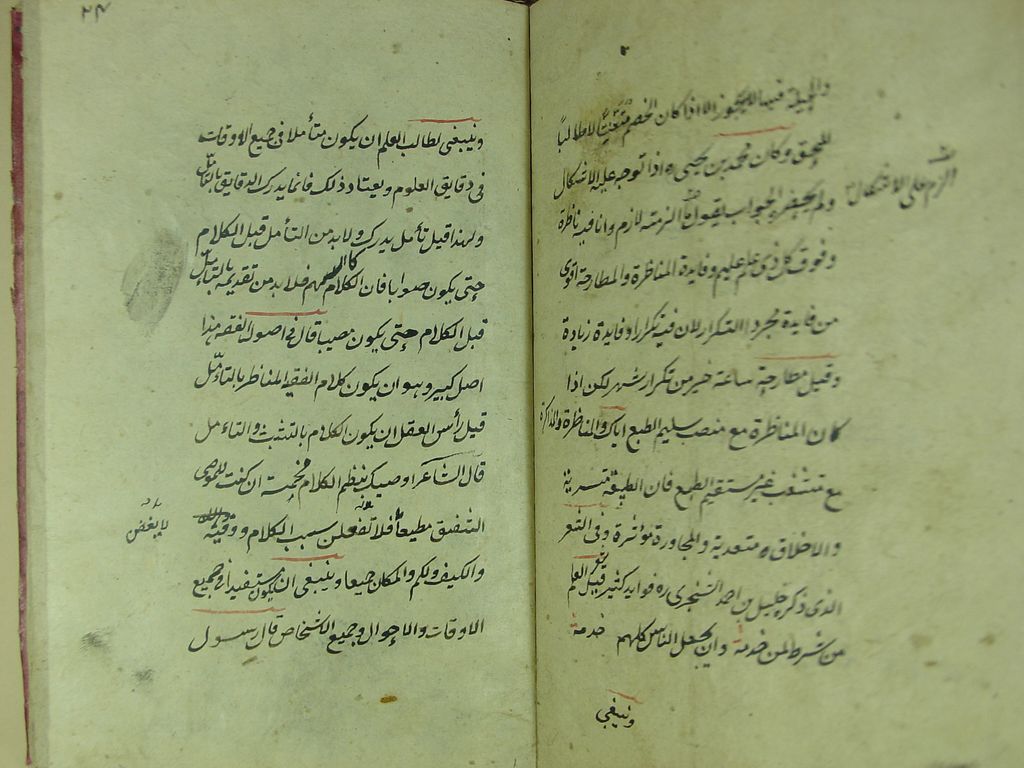 والحيلة فيها لا يجوز الا اذا كان الخصم متعنتا لا طالبا
للحق وكان محمد بن يحيى ره اذا توجه عليه الاشكال
ولم يحضره الجواب يقول الزمته لازم وانا فيه ناظرة
وفوق كل ذى علم عليم وفايدة المناظرة والمطارحة اقوى
من فايدة مجرد التكرار لان فيه تكرارا وفايدة زيادة
وقيل مطارحة ساعة خير من تكرار شهر لكن اذا
كان المناظرة مع منصب سليم الطبع اياك والمناظرة والمذاكرة
مع متشغب غير مستقيم الطبع فان الطبيعة متسرية
والاخلاق متعدية والمجاورة مؤثرة وفى الشعر
الذى ذكره خليل بن احمد السنجرى ره فوايد كثير قيل العلم
من شرط لمن خدمة وان يجعل الناس كلهم خدمة
وينبغى
الزم على الاشكال
٢٤
وينبغى لطالب العلم ان يكون متأملا فى جميع الاوقات
فى دقايق العلوم ويعتاد ذلك فانما يدرك الدقايق بالتأمل
ولهذا قيل تأمل يدرك ولا بد من التأمل قبل الكلام
حتى يكون صوابا فان الكلام كالسهم فلا بد من تقديمه بالتأمل
قبل الكلام حتى يكون مصيبا قال فى اصول الفقه هذا
اصل كبير وهو ان يكون كلام الفقيه المناظر بالتأمل
قيل رأس العقل ان يكون الكلام بالتثبت والتاءمل
قال الشاعر اوصيك بنظم الكلام مخمسة ان كنت للموصى
الشفيق مطيعا فلا تفعلن سبب الكلام ووقته
والكيف والكم والمكان جميعا وينبغى ان يكون مستفيدا فى جميع
الاوقات والاحوال وجميع الاشخاص قال رسول